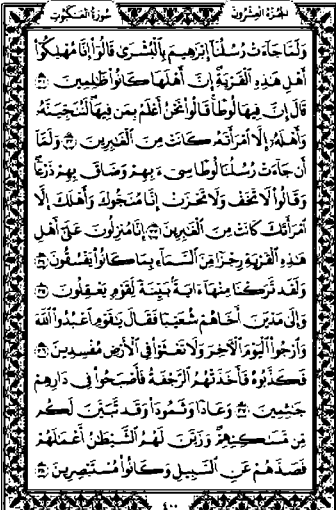 الجُزْءُ العِشْرُونَ سُورَةُ العَنكَبُوتِ
وَلَمَّا جَآءَتْ رُسُلُنَآ إِبْرَٰهِيمَ بِٱلْبُشْرَىٰ قَالُوٓا۟ إِنَّا مُهْلِكُوٓا۟
أَهْلِ هَٰذِهِ ٱلْقَرْيَةِ إِنَّ أَهْلَهَا كَانُوا۟ ظَٰلِمِينَ ٣١
قَالَ إِنَّ فِيهَا لُوطًا قَالُوا۟ نَحْنُ أَعْلَمُ بِمَن فِيهَا لَنُنَجِّيَنَّهُۥ
وَأَهْلَهُۥٓ إِلَّا ٱمْرَأَتَهُۥ كَانَتْ مِنَ ٱلْغَٰبِرِينَ ٣٢ وَلَمَّآ
أَن جَآءَتْ رُسُلُنَا لُوطًا سِىٓءَ بِهِمْ وَضَاقَ بِهِمْ ذَرْعًا
وَقَالُوا۟ لَا تَخَفْ وَلَا تَحْزَنْ إِنَّا مُنَجُّوكَ وَأَهْلَكَ إِلَّا
ٱمْرَأَتَكَ كَانَتْ مِنَ ٱلْغَٰبِرِينَ ٣٣ إِنَّا مُنزِلُونَ عَلَىٰٓ أَهْلِ
هَٰذِهِ ٱلْقَرْيَةِ رِجْزًا مِّنَ ٱلسَّمَآءِ بِمَا كَانُوا۟ يَفْسُقُونَ ٣٤
وَلَقَد تَّرَكْنَا مِنْهَآ ءَايَةًۢ بَيِّنَةً لِّقَوْمٍ يَعْقِلُونَ ٣٥
وَإِلَىٰ مَدْيَنَ أَخَاهُمْ شُعَيْبًا فَقَالَ يَٰقَوْمِ ٱعْبُدُوا۟ ٱللَّهَ
وَٱرْجُوا۟ ٱلْيَوْمَ ٱلْءَاخِرَ وَلَا تَعْثَوْا۟ فِى ٱلْأَرْضِ مُفْسِدِينَ ٣٦
فَكَذَّبُوهُ فَأَخَذَتْهُمُ ٱلرَّجْفَةُ فَأَصْبَحُوا۟ فِى دَارِهِمْ
جَٰثِمِينَ ٣٧ وَعَادًا وَثَمُودَا۟ وَقَد تَّبَيَّنَ لَكُم
مِّن مَّسَٰكِنِهِمْ وَزَيَّنَ لَهُمُ ٱلشَّيْطَٰنُ أَعْمَٰلَهُمْ
فَصَدَّهُمْ عَنِ ٱلسَّبِيلِ وَكَانُوا۟ مُسْتَبْصِرِينَ ٣٨
٤٠٠